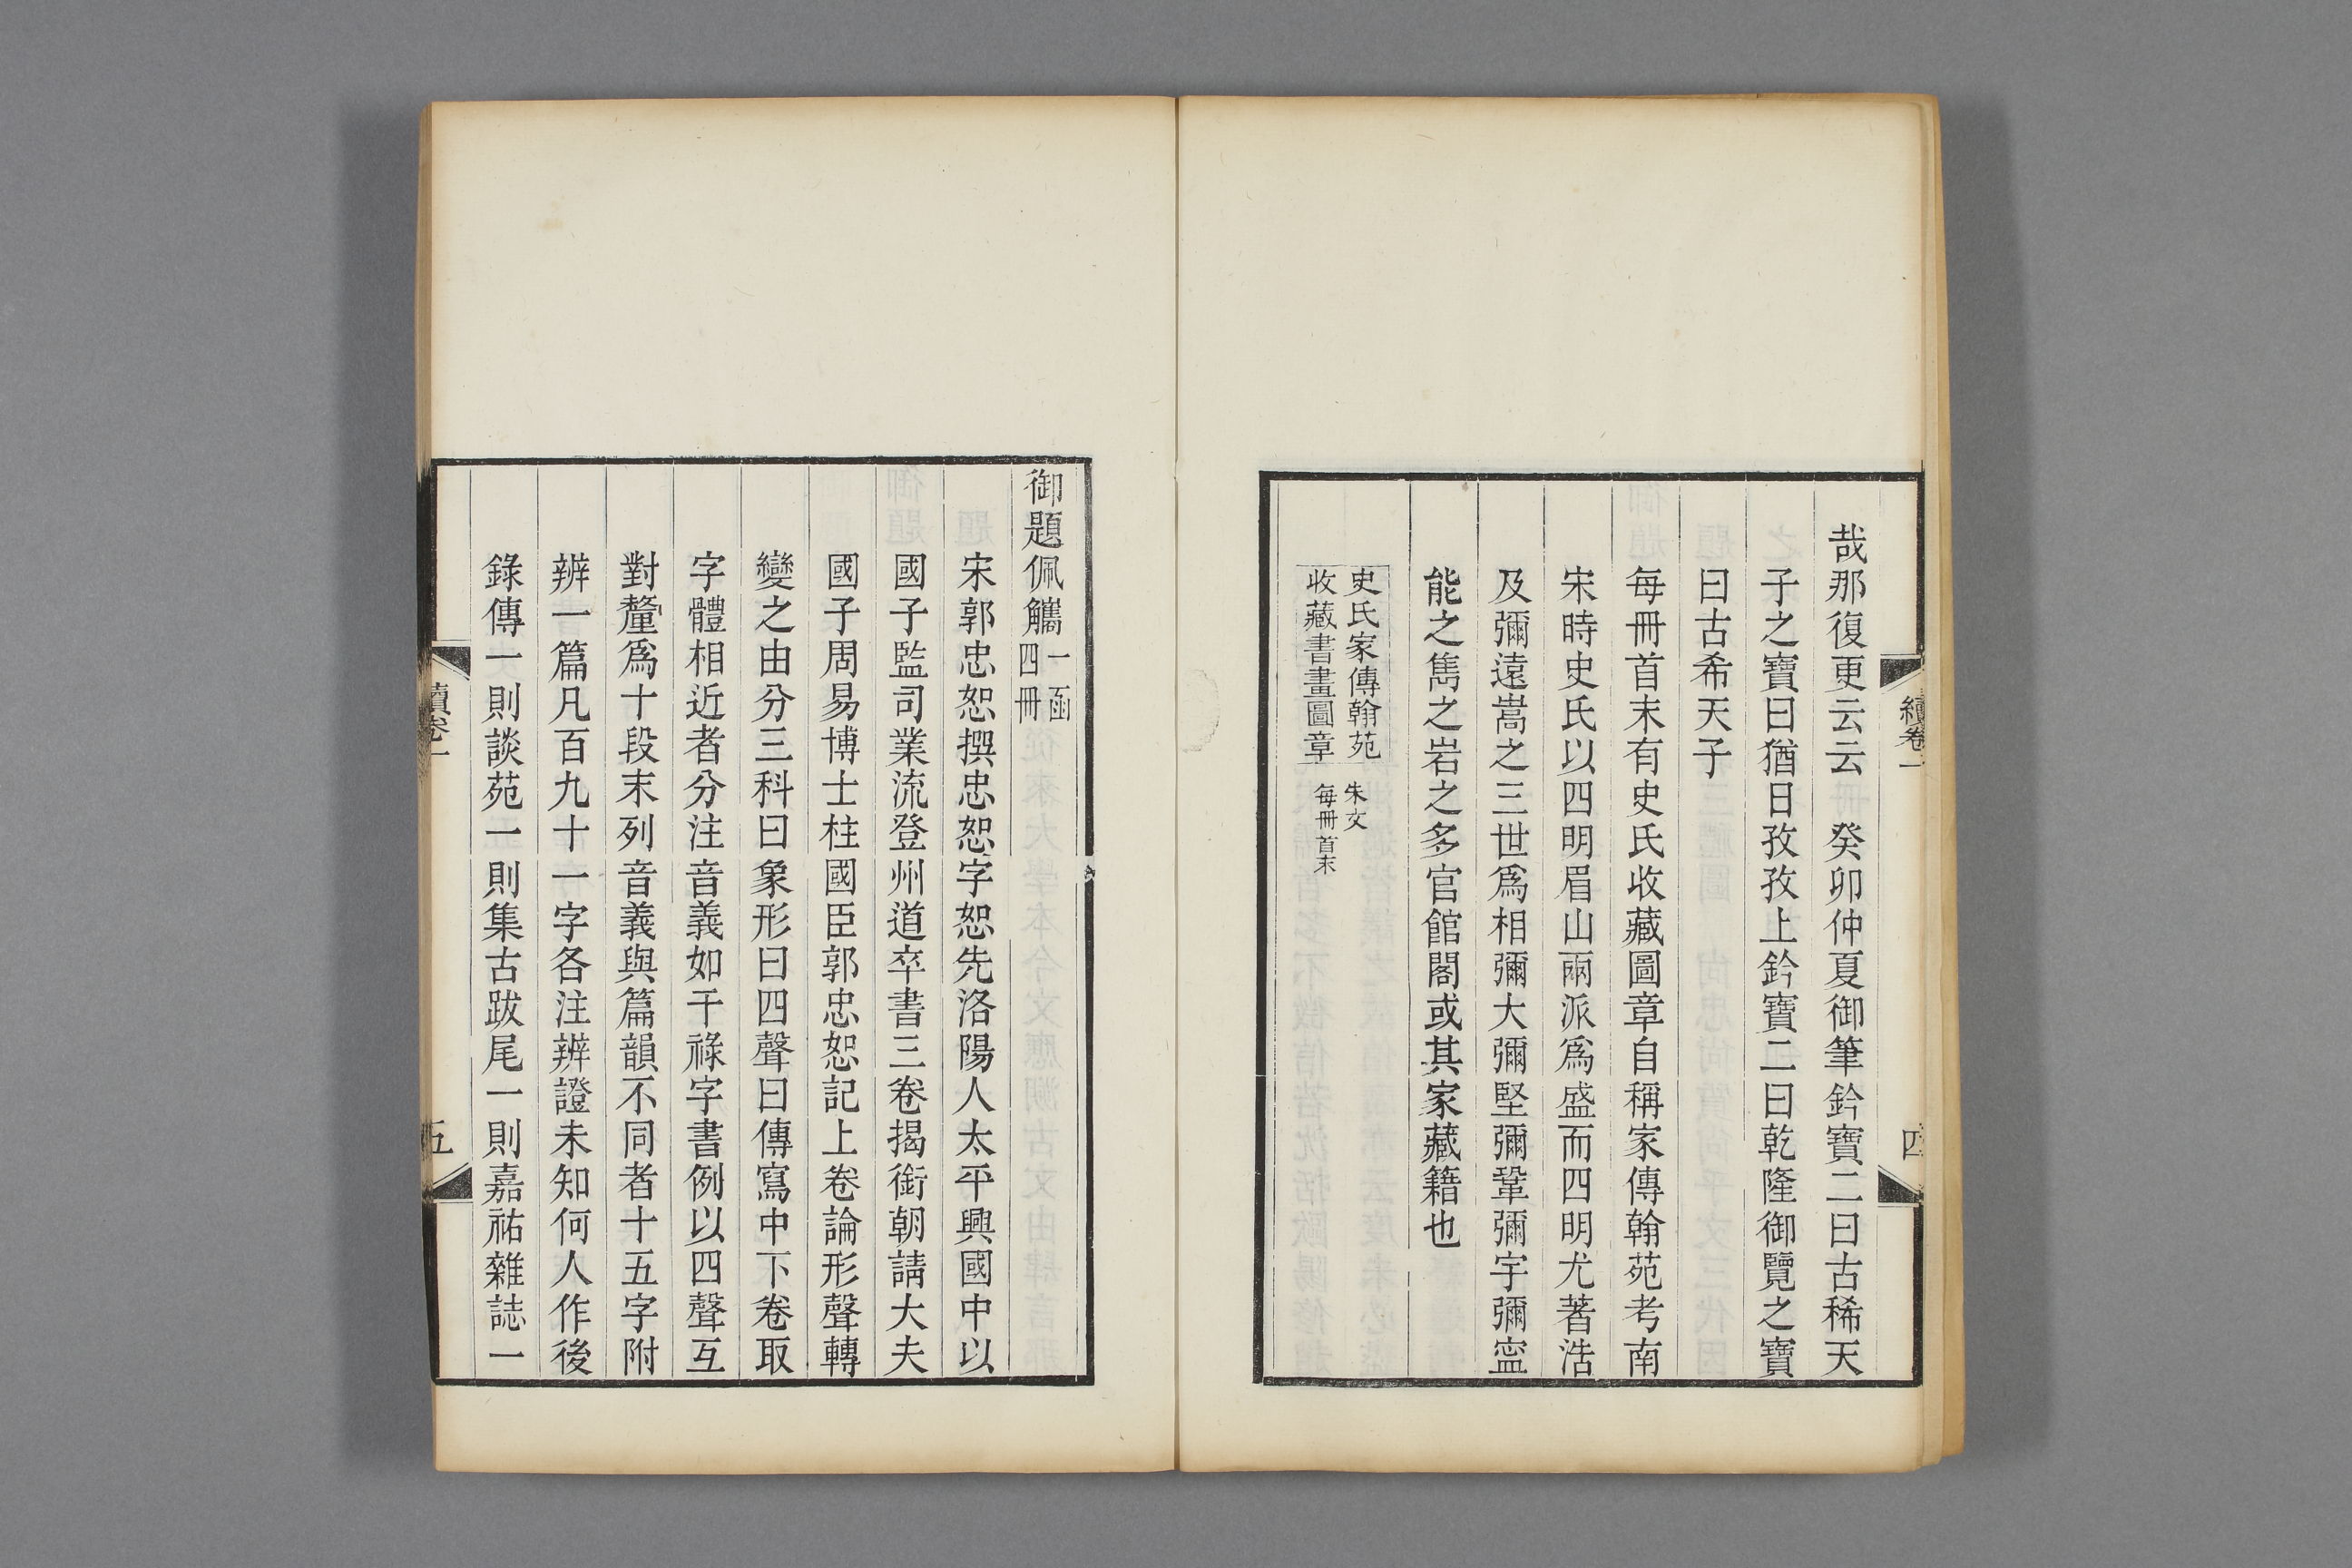 續卷一
四
哉那復更云云　癸卯仲夏御筆鈐寶二曰古稀天
子之寶曰猶日孜孜上鈐寶二曰乾隆御覽之寶
曰古希天子
每冊首末有史氏收藏圖章自稱家傳翰苑考南
宋時史氏以四明眉山兩派爲盛而四明尤著浩
及彌遠嵩之三世爲相彌大彌堅彌鞏彌宇彌寍
能之雋之岩之多官館閣或其家藏籍也
史氏家傳翰苑
收藏書畫圖章
朱文
每冊首末
御題佩觿
一函
四冊
宋郭忠恕撰忠恕字恕先洛陽人太平興國中以
國子監司業流登州道卒書三卷揭銜朝請大夫
國子周易博士柱國臣郭忠恕記上卷論形聲轉
變之由分三科曰象形曰四聲曰傳寫中下卷取
字體相近者分注音義如干祿字書例以四聲互
對釐爲十段末列音義與篇韻不同者十五字附
辨一篇凡百九十一字各注辨證未知何人作後
錄傳一則談苑一則集古跋尾一則嘉祐雜誌一
續卷一
五